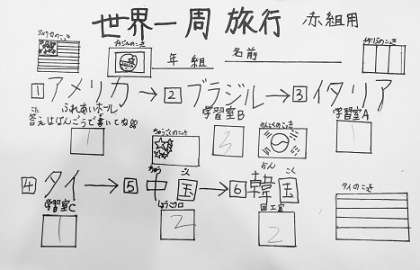 世界一周旅行 赤組用
年 組 名前
1 アメリカ→2 ブラジル→3 イタリア
ふれあいホール 学習室B 学習室A
答えはばんごうで書いてね
1 3 1
ちゅうごくのこっき かんこくのこっき
4 タイ→5 中国→6 韓国
ちゅう ごく かん こく
学習室C 図工室 タイのこっき
1 2 2